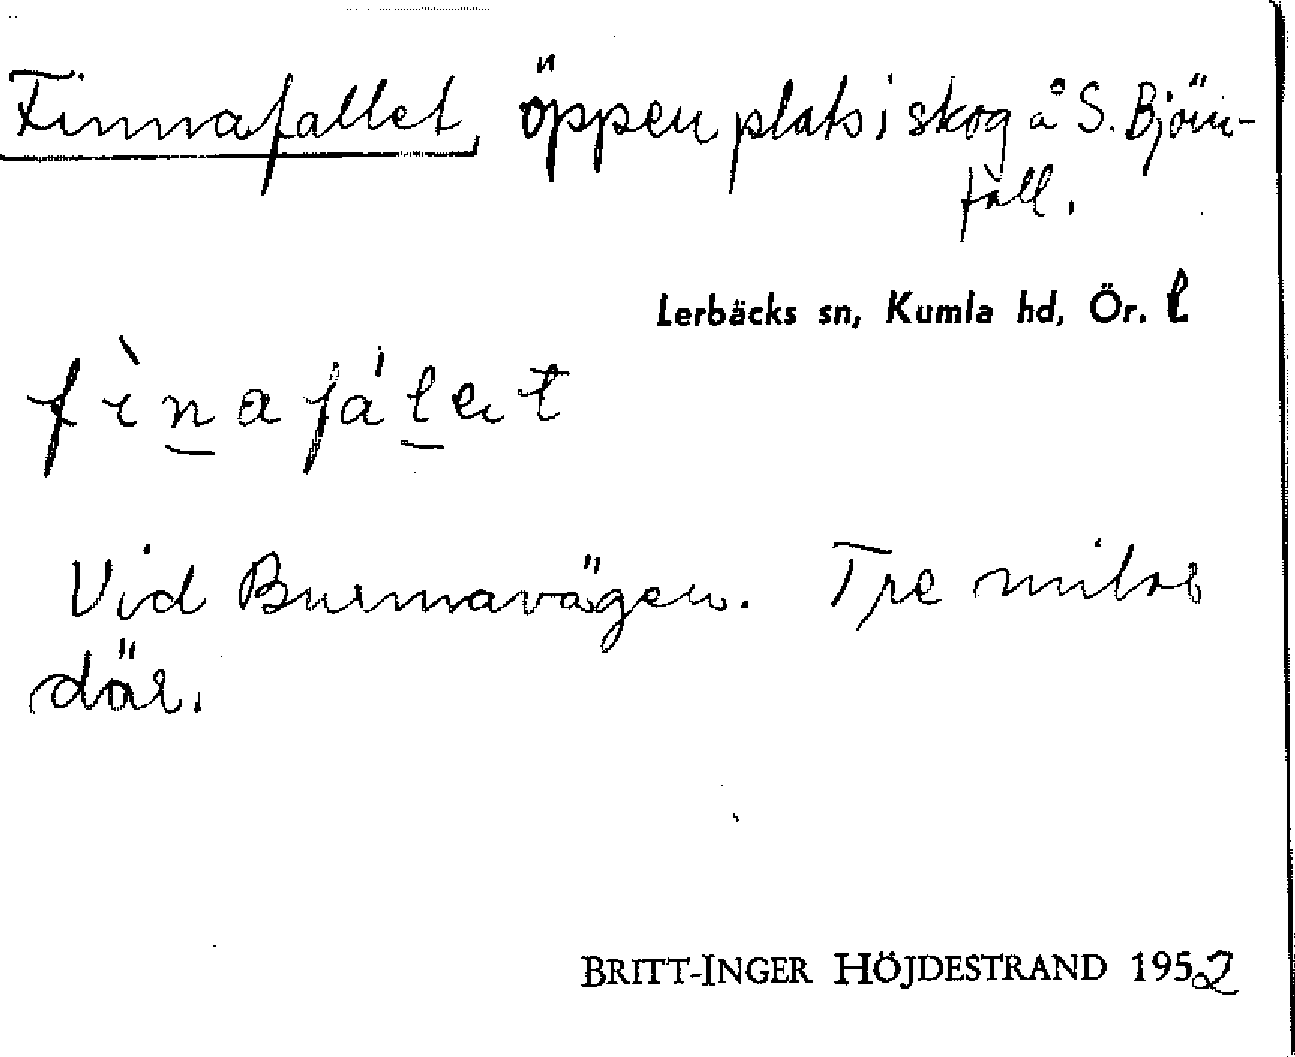 Finnafallet, öppen plats i skog å S. Björn-
fall.
Lerbäcks sn, Kumla hd, Ör. l
fìnafálet
Vid Burmavägen. Tre milor
där.
BRITT-INGER HÖJDESTRAND 1952